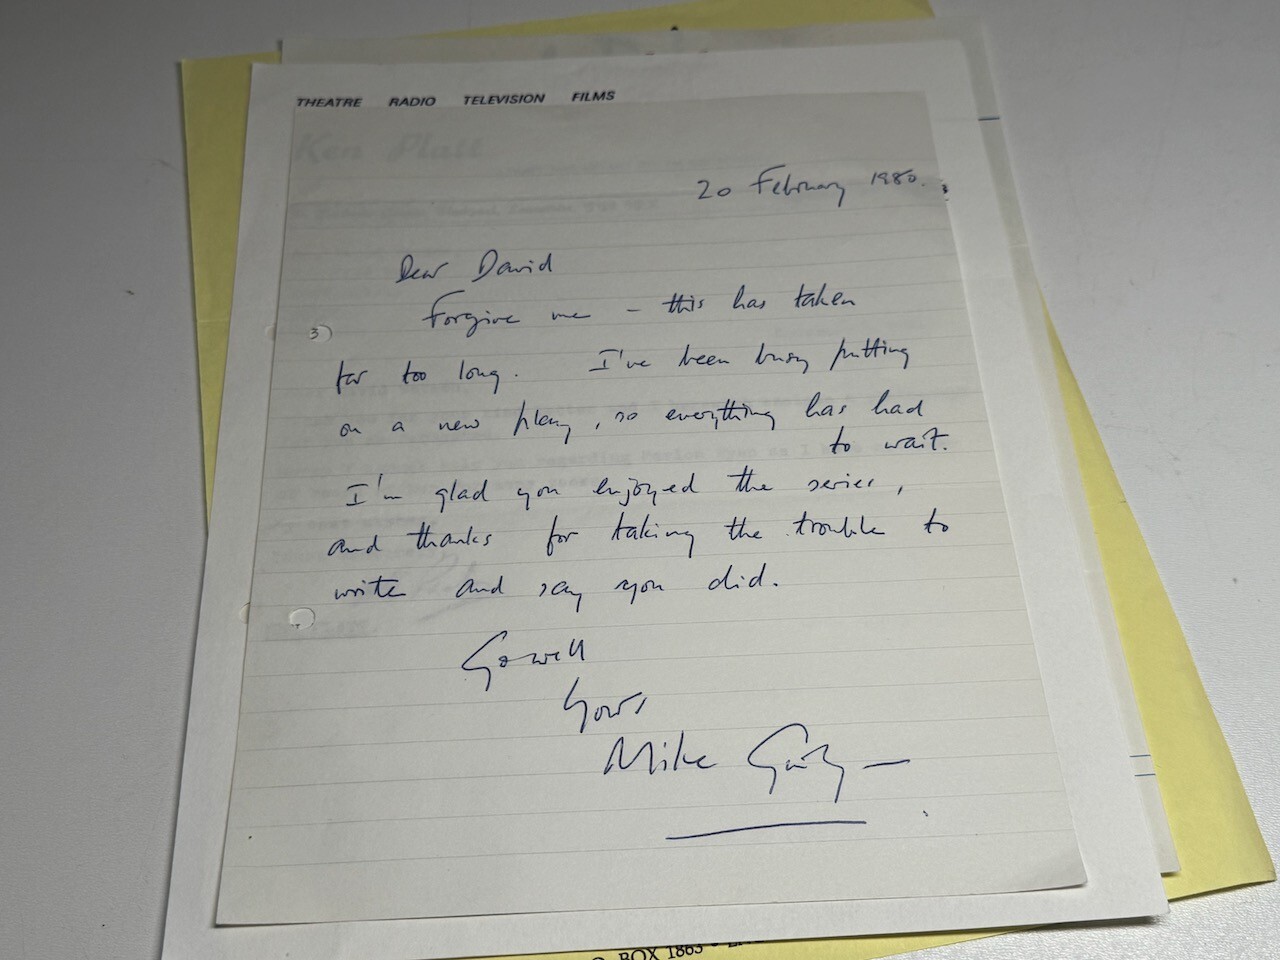 THEATRE RADIO TELEVISION FILMS
Ken Platt
20 February 1980.
Dear David
Forgive me – this has taken
far too long. I've been busy putting
on a new play, so everything has had
to wait.
I'm glad you enjoyed the series,
and thanks for taking the trouble to
write and say you did.
Farewell
Yours
Mike
3
BOX 1863